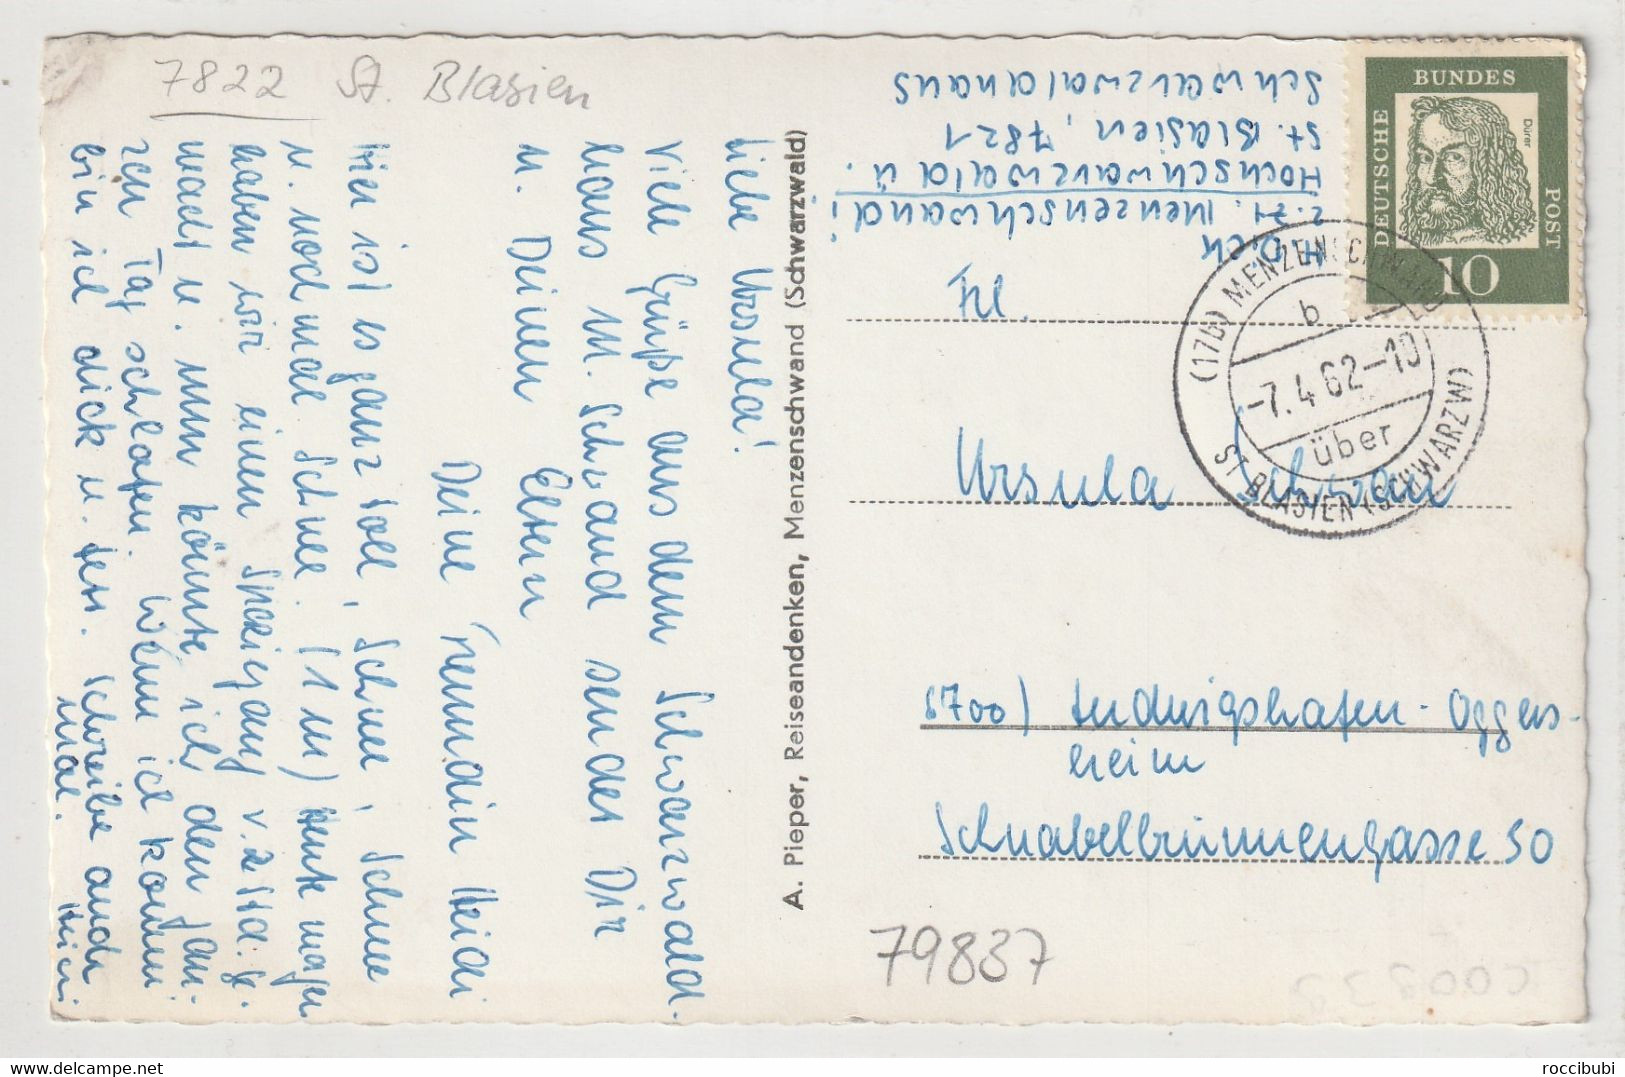 7822 St. Blasien
Liebe Ursula!
Viele Grüße aus dem Schwarzwald-
haus M. Schwand sendet Dir
u. Deinen Eltern
Deine Freundin Heidi
Hier ist es ganz toll, Schnee, Schnee
u. nochmal Schnee. (1 m) Heute
haben wir einen Spaziergang v. 2 Std. ge-
macht u. nun könnte ich den gan-
zen Tag schlafen. Wenn ich komm
bin ich dick u. fett. Schreibe auch
mal.
A. Pieper, Reiseandenken, Menzenschwand (Schwarzwald)
z. Zt. Menzenschwand
Hochschwarzwald ü.
St. Blasien, 7821
Schwarzwaldhaus
DEUTSCHE
BUNDES
POST
Dürer
10
(17b) MENZENSCHWAND
b
-7.4.62-10
über
ST BLASIEN (SCHWARZW)
Frl.
Ursula
6700) Ludwigshafen-Oggers-
heim
Schnabelbrunnengasse 50
79837
roccibubi